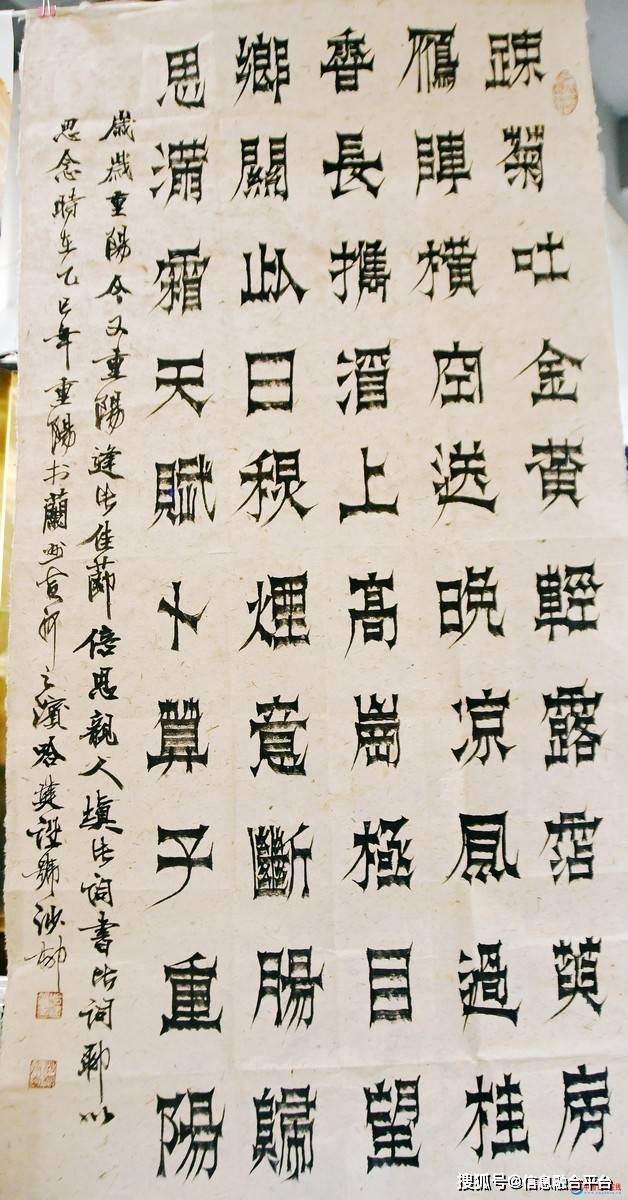 疎菊吐金黃輕露霑萸房
鴈陣橫空送晚涼風過桂
香長攜酒上高崗極目望
鄉關此日煙意斷腸歸
思滿霜天賦卜算子重陽
歲歲重陽今又重陽逢此佳節倍思親人填此詞書此詞聊以
思念時在乙巳年重陽於蘭州黃河之濱哈建號沙柳
搜狐号@信息融合平台